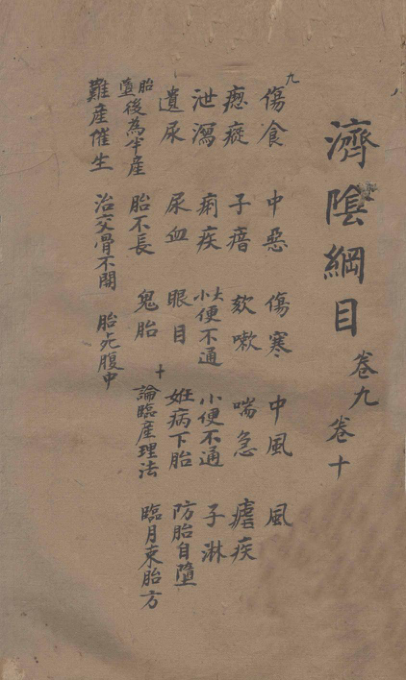 濟陰綱目 卷九 卷十
九 傷食 中惡 傷寒 中風 風
瘛瘲 子瘖 欬嗽 喘急 瘧疾
泄瀉 痢疾 大小便不通 小便不通 子淋
遺尿 尿血 眼目 妊病下胎 防胎自墮
胎墮後為半產 胎不長 鬼胎 十 論臨產理法 臨月束胎方
難產催生 治交骨不開 胎死腹中